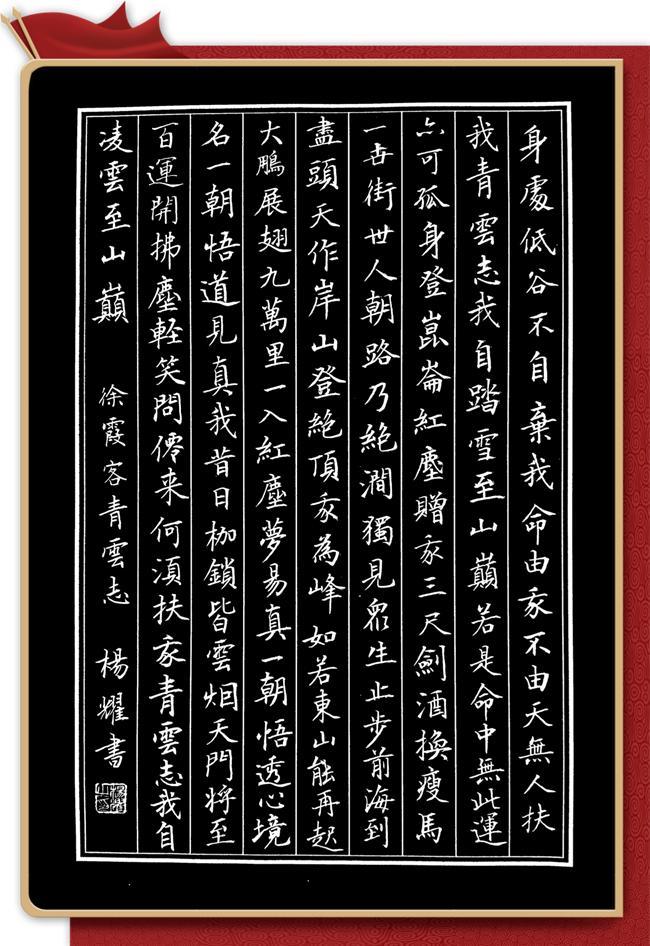 身處低谷不自棄我命由我不由天無人扶
我青雲志我自踏雪至山巔若是命中無此運
亦可孤身登崑崙紅塵贈我三尺劍酒換瘦馬
一世街世人朝路乃絶澗獨見眾生止步前海到
盡頭天作岸山登絶頂我為峰如若東山能再起
大鵬展翅九萬里一入紅塵夢易真一朝悟透心境
名一朝悟道見真我昔日枷鎖皆雲烟天門將至
百運開拂塵輕笑問僊来何須扶我青雲志我自
凌雲至山巔 徐霞客青雲志 楊耀書